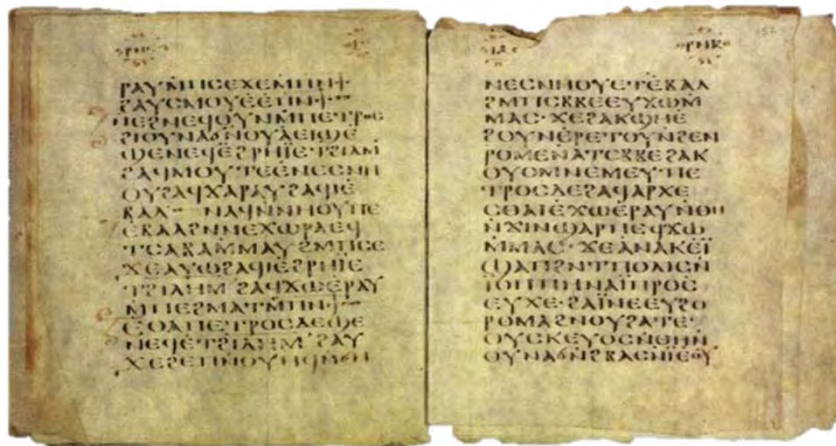 ⲣⲛⲁ
ⲓⲇ
ⲣⲛⲃ
ⲣⲁⲩⲙ̇ⲡⲥⲉϫⲉⲙ̇ⲡⲛ̇ϯ
ϩⲁⲩⲥⲙⲟⲩⲉ̇ⲉⲡⲛ̇ϯ
ⲡⲉϩⲛⲉϥⲟⲩⲛⲙ̇ⲡⲉⲧⲣⲟⲥ
ϩⲓⲟⲩⲛⲁϭⲛ̇ⲟⲩⲁⲉⲓϣⲉ
ϣⲉⲛⲉϥⲉ̇ϩⲣⲏⲓ̈ⲉⲧϩⲓⲗⲏⲙ
ϩⲁϥⲙⲟⲩⲧⲉⲉ̇ⲛⲉⲥⲛⲏ
ⲟⲩϩⲁϥⲭⲁⲣⲁⲩϩⲁϥⲓⲉ̇
ⲃⲁⲗ ⲛⲁϥⲛ̇ⲛⲏⲟⲩⲡⲉ
ⲉ̇ⲃⲁⲗϩⲛ̇ⲛⲉⲭⲱⲣⲁⲉϥ
ⲧⲥⲁⲃⲁⲙ̇ⲙⲁⲩϩⲙⲡⲥⲉ
ϫⲉⲁⲩⲱϩⲁϥⲓⲉϩⲣⲏⲓ̈ⲉ
ⲧϩⲓⲗⲏⲙ ϩⲁϥϫⲱⲉ̇ⲣⲁⲩ
ⲙ̇ⲡⲉϩⲙⲁⲧⲙ̇ⲡⲛ̇ϯ
ⲉ̇ⲑⲁⲡⲉⲧⲣⲟⲥⲇⲉϣⲉ
ⲛⲉϥⲉ̇ⲧϩⲓⲗⲏⲙ ϩⲁⲩ
ϫⲉϩⲉⲡⲛⲟⲩⲛϥⲙϭⲏ
ⲛⲉⲥⲛⲏⲟⲩⲉⲧⲉ̇ⲃⲁⲗ
ϩⲙⲡⲥⲃⲃⲉⲉⲩϫⲱⲙ̇
ⲙⲁⲥ· ϫⲉϩⲁⲕϣⲏⲉ̇
ϩⲟⲩⲛⲉ̇ⲣⲉⲧⲟⲩⲛ̇ϩⲉⲛ
ⲣⲟⲙⲉⲛ̇ⲁⲧⲥⲃⲃⲉϩⲁⲕ
ⲟⲩⲟⲙⲛⲉⲙⲉⲩ ⲡⲉ
ⲧⲣⲟⲥⲇⲉϩⲁϥⲁⲣⲭⲉ
ⲥⲑⲁⲓⲉ̇ϫⲱⲉ̇ⲣⲁⲩⲛ̇ⲑⲏ
ⲛ̇ϫⲓⲛϣⲁⲣⲡⲉϥϫⲱ
ⲙ̇ⲙⲁⲥ· ϫⲉⲁⲛⲁⲕⲉⲓ̈
ϣⲁⲡϩⲛⲧⲡⲟⲗⲓⲥⲛ̇
ⲓⲟⲡⲡⲏⲛⲁⲓ̈ⲡⲣⲟⲥ
ⲉⲩⲭⲉ· ϩⲁⲓ̈ⲛⲉⲉⲩϩⲟ
ⲣⲟⲙⲁϩⲛⲟⲩϩⲁⲧⲉ·
ⲟⲩⲥⲕⲉⲩⲟⲥⲛ̇ⲑⲏⲛ̇
ⲟⲩⲛⲁϭⲛ̇ϩⲃⲁⲥⲛ̇ⲓ̈ⲉⲟⲩ